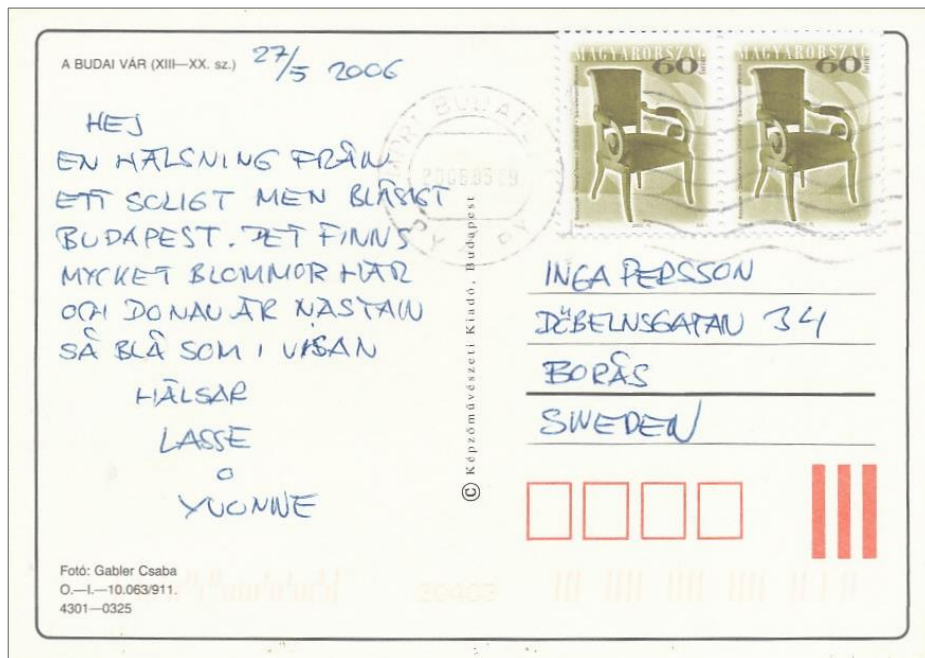 A BUDAI VÁR (XIII—XX. sz.)
27/5 2006
HEJ
EN HÄLSNING FRÅN
ETT SOLIGT MEN BLÅSIGT
BUDAPEST. DET FINNS
MYCKET BLOMMOR HÄR
OCH DONAU ÄR NÄSTAN
SÅ BLÅ SOM I VISAN
HÄLSAR
LASSE
O
YVONNE
Fotó: Gabler Csaba
O.—I.—10.063/911.
4301—0325
© Képzőművészeti Kiadó, Budapest
MAGYARORSZÁG
60
MAGYARORSZÁG
60
INGA PERSSON
DÖBELNSGATAN 34
BORÅS
SWEDEN